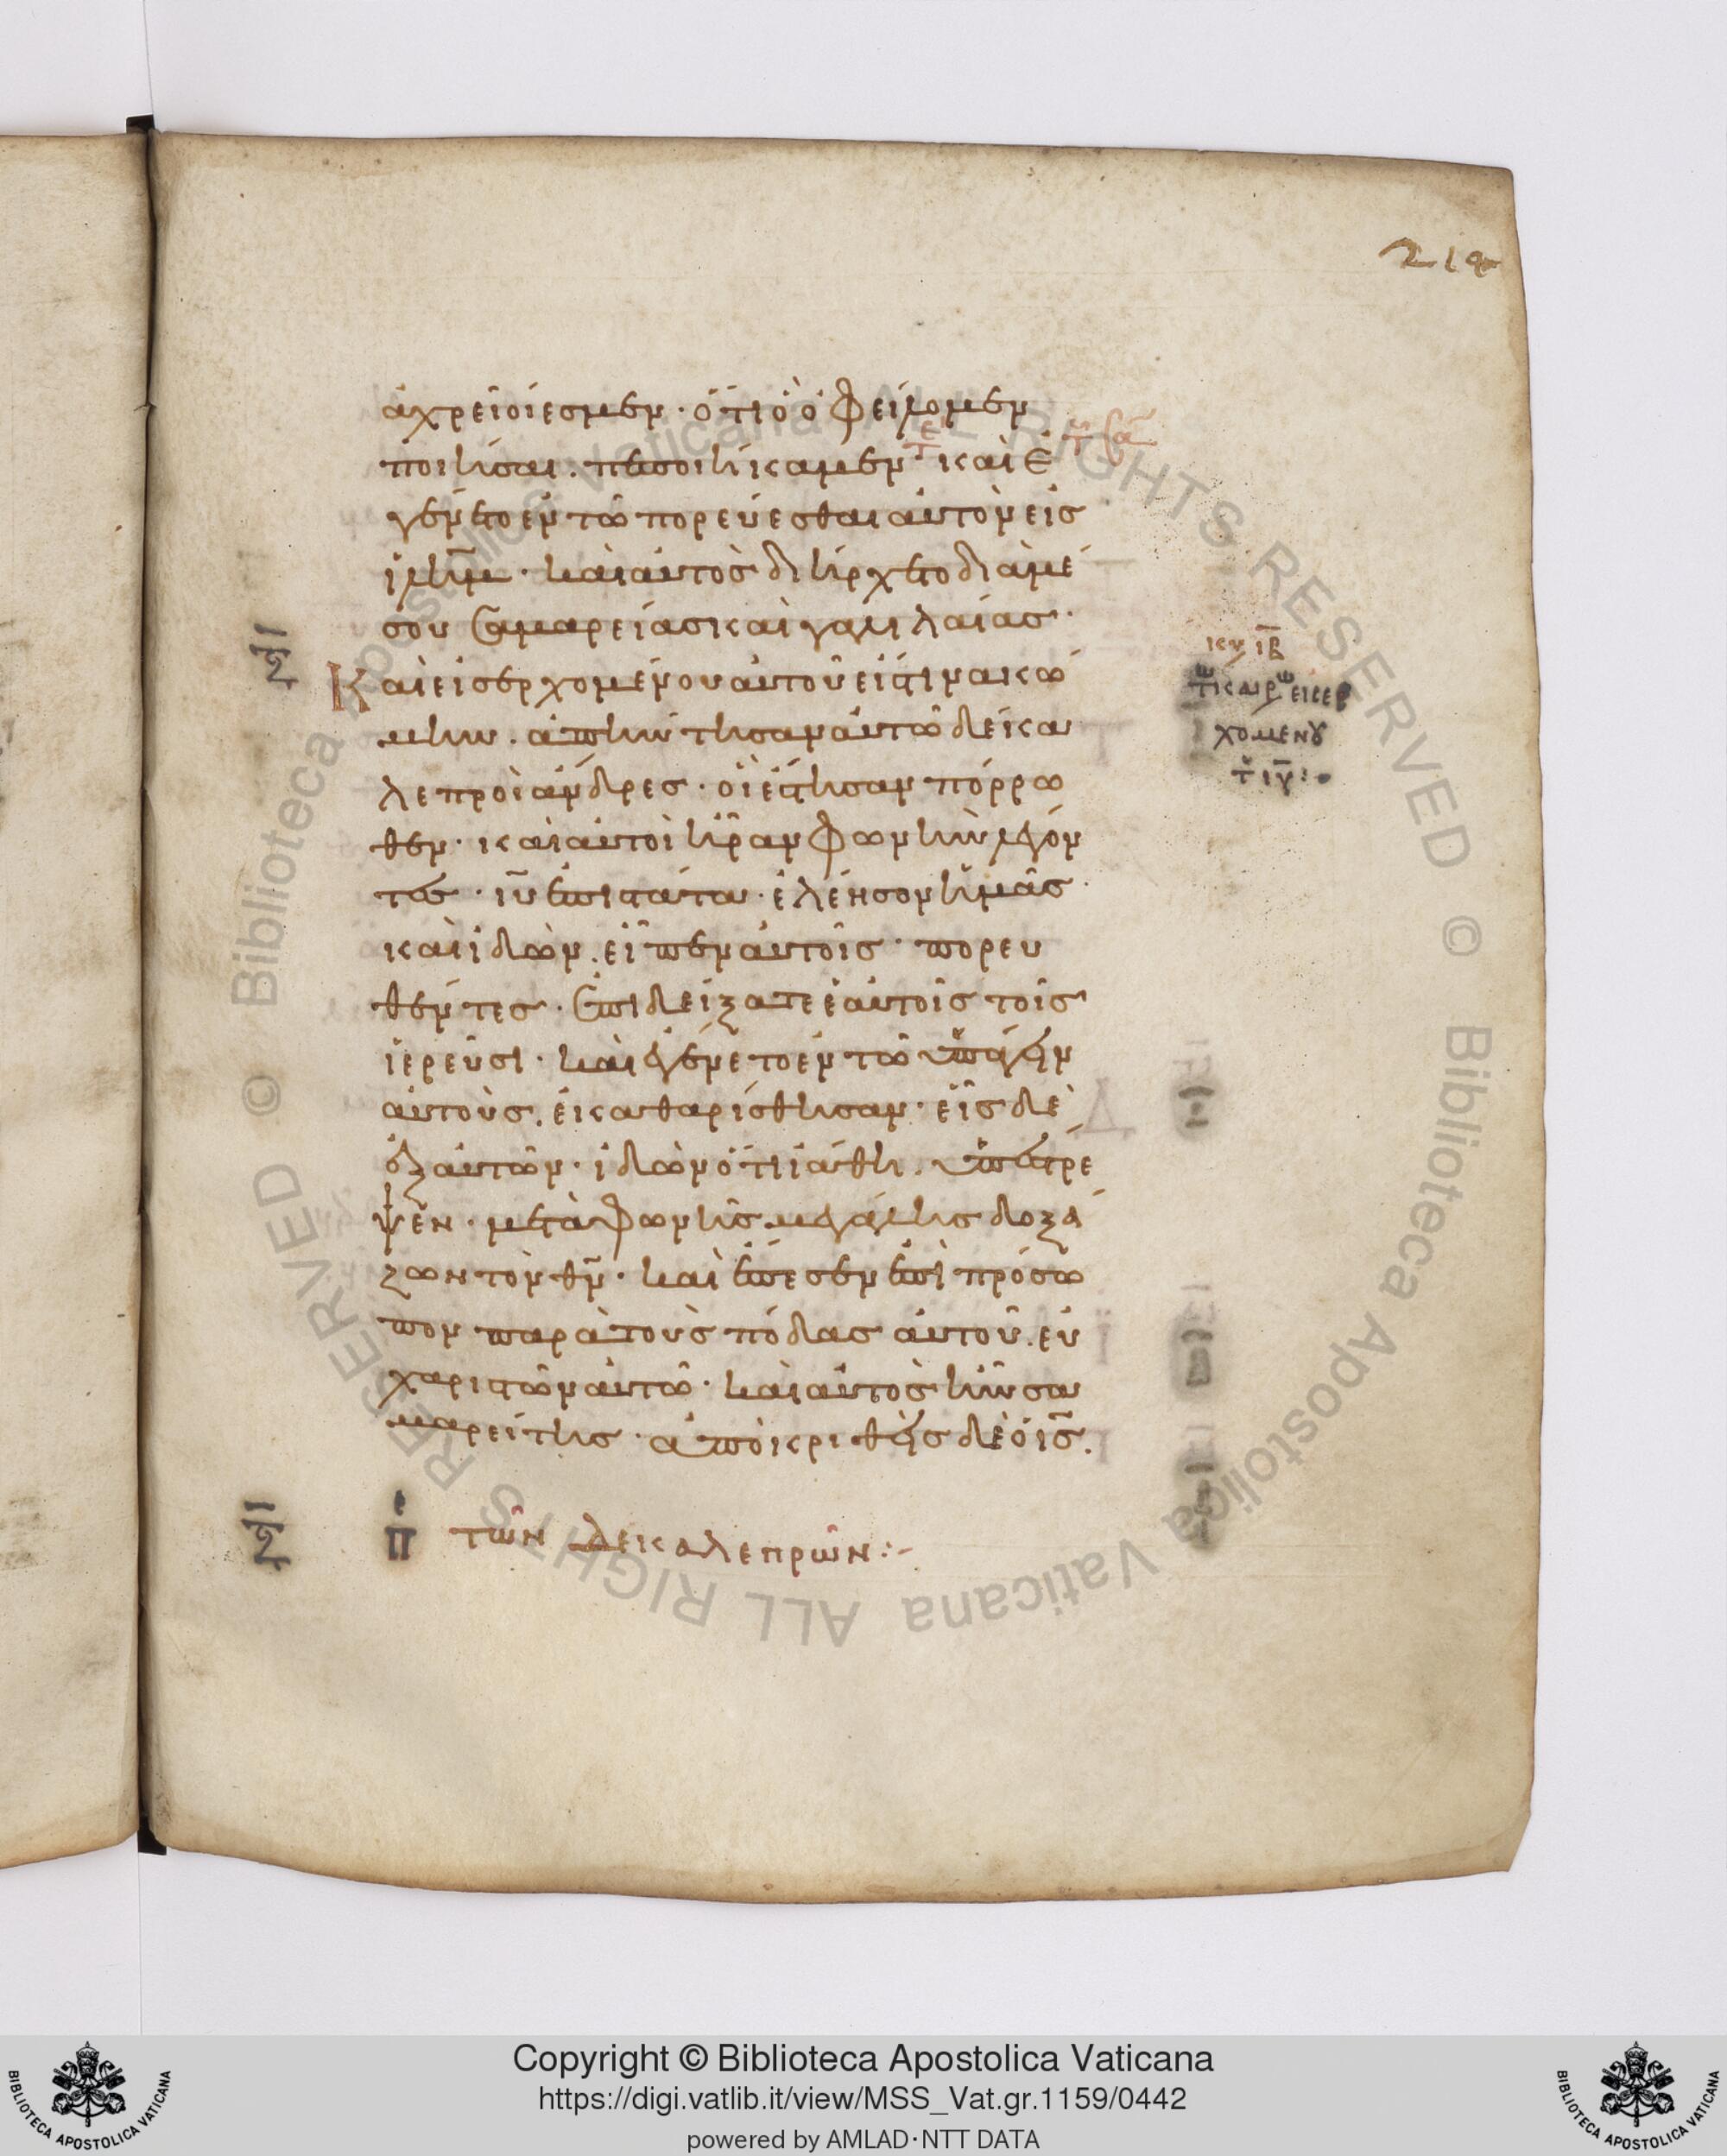 219
ἀχρεῖοί ἐσμεν· ὅτι ὃ ὀφείλομεν
ποιῆσαι. πεποιήκαμεν τε καὶ ἐ
γένετο ἐν τῶ πορεύεσθαι αὐτὸν εἰς
ἰλῆμ· καὶ αὐτὸς διήρχετο διὰ μέ
σου σαμαρείας καὶ γαλιλαίας·
Καὶ εἰσερχομένου αὐτοῦ εἴς τινα κώ
μην. ἀπήντησαν αὐτῶ δέκα
λεπροὶ ἄνδρες· οἳ ἔστησαν πόρρω
θεν· καὶ αὐτοὶ ἦραν φωνὴν λέγον
τες· ιῦ ἐπιστάτα· ἐλέησον ἡμᾶς·
καὶ ἰδὼν. εἶπεν αὐτοῖς· πορευ
θέντες· ἐπιδείξατε ἑαυτοῖς τοῖς
ἱερεῦσι· καὶ ἐγένετο ἐν τῶ ὑπάγειν
αὐτοὺς. ἐκαθαρίσθησαν· εἷς δὲ
ἐξ αὐτῶν· ἰδὼν ὅτι ἰάθη. ὑπέστρε
ψεν· μετὰ φωνῆς μεγάλης δοξά
ζων τὸν θν· καὶ ἔπεσεν ἐπὶ πρόσω
πον παρὰ τοὺς πόδας αὐτοῦ. εὐ
χαριστῶν αὐτῶ· καὶ αὐτὸς ἦν σα
μαρείτης· ἀποκριθεὶς δὲ ὁ ις.
κυ ιβ
τω καιρω εισερ
χομενου
ξι
ξι
π τῶν δέκα λεπρῶν:-
© Biblioteca Apostolica Vaticana ALL RIGHTS RESERVED © Biblioteca Apostolica Vaticana ALL RIGHTS RESERVED
Copyright © Biblioteca Apostolica Vaticana
https://digi.vatlib.it/view/MSS_Vat.gr.1159/0442
powered by AMLAD·NTT DATA
BIBLIOTECA APOSTOLICA VATICANA
BIBLIOTECA APOSTOLICA VATICANA